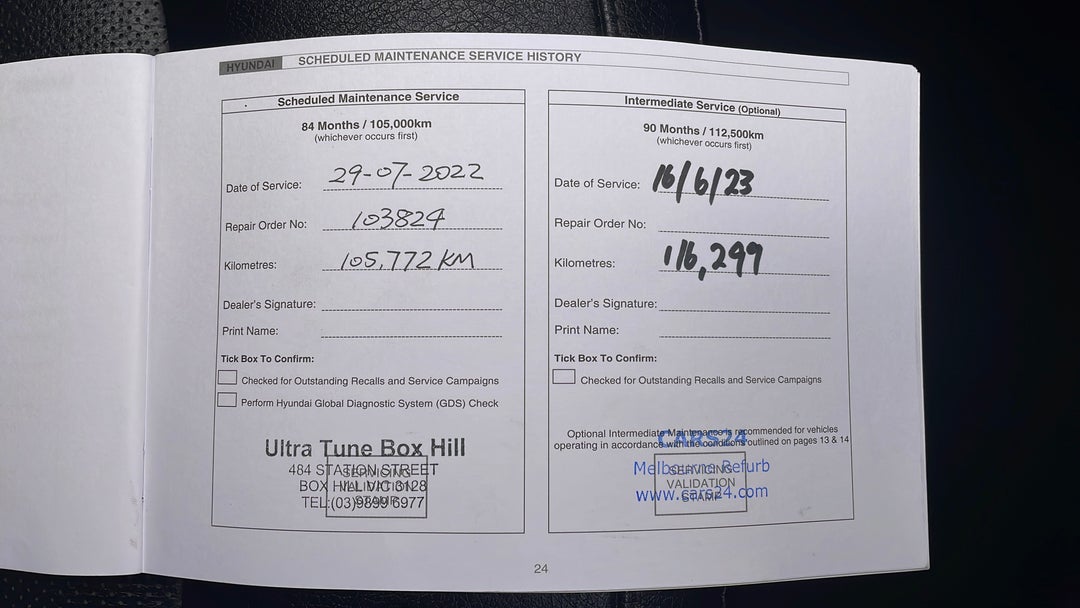 HYUNDAI SCHEDULED MAINTENANCE SERVICE HISTORY
Scheduled Maintenance Service
84 Months / 105,000km
(whichever occurs first)
Date of Service: 29-07-2022
Repair Order No: 103824
Kilometres: 105,772 KM
Dealer's Signature:
Print Name:
Tick Box To Confirm:
Checked for Outstanding Recalls and Service Campaigns
Perform Hyundai Global Diagnostic System (GDS) Check
Ultra Tune Box Hill
484 STATION STREET
BOX HILL VIC 3128
TEL:(03)9899 6977
SERVICING
VALIDATION
STAMP
Intermediate Service (Optional)
90 Months / 112,500km
(whichever occurs first)
Date of Service: 16/6/23
Repair Order No:
Kilometres: 116,299
Dealer's Signature:
Print Name:
Tick Box To Confirm:
Checked for Outstanding Recalls and Service Campaigns
Optional Intermediate Maintenance is recommended for vehicles
operating in accordance with the conditions outlined on pages 13 & 14
CARS24
Melbourne Refurb
www.cars24.com
SERVICING
VALIDATION
STAMP
24